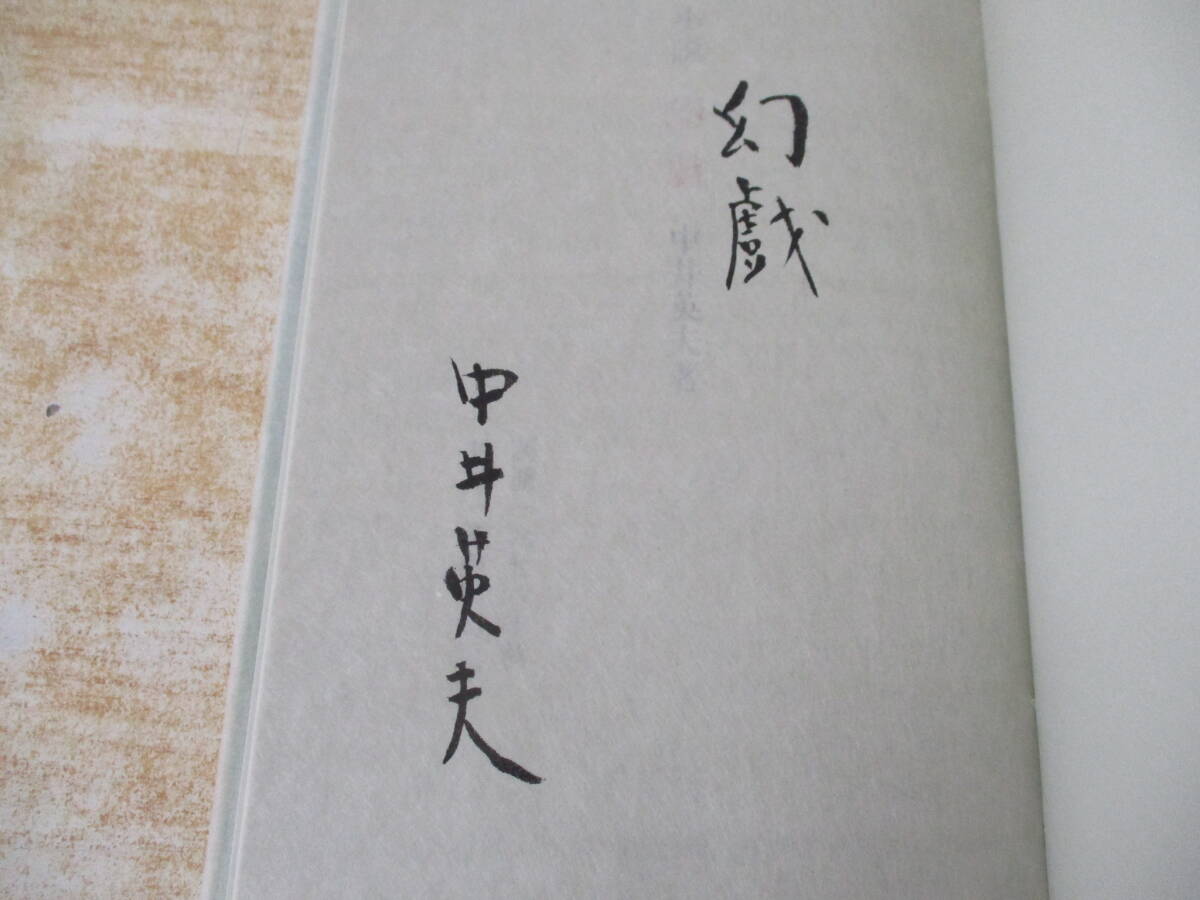 幻戯
中井英夫著
中井英夫